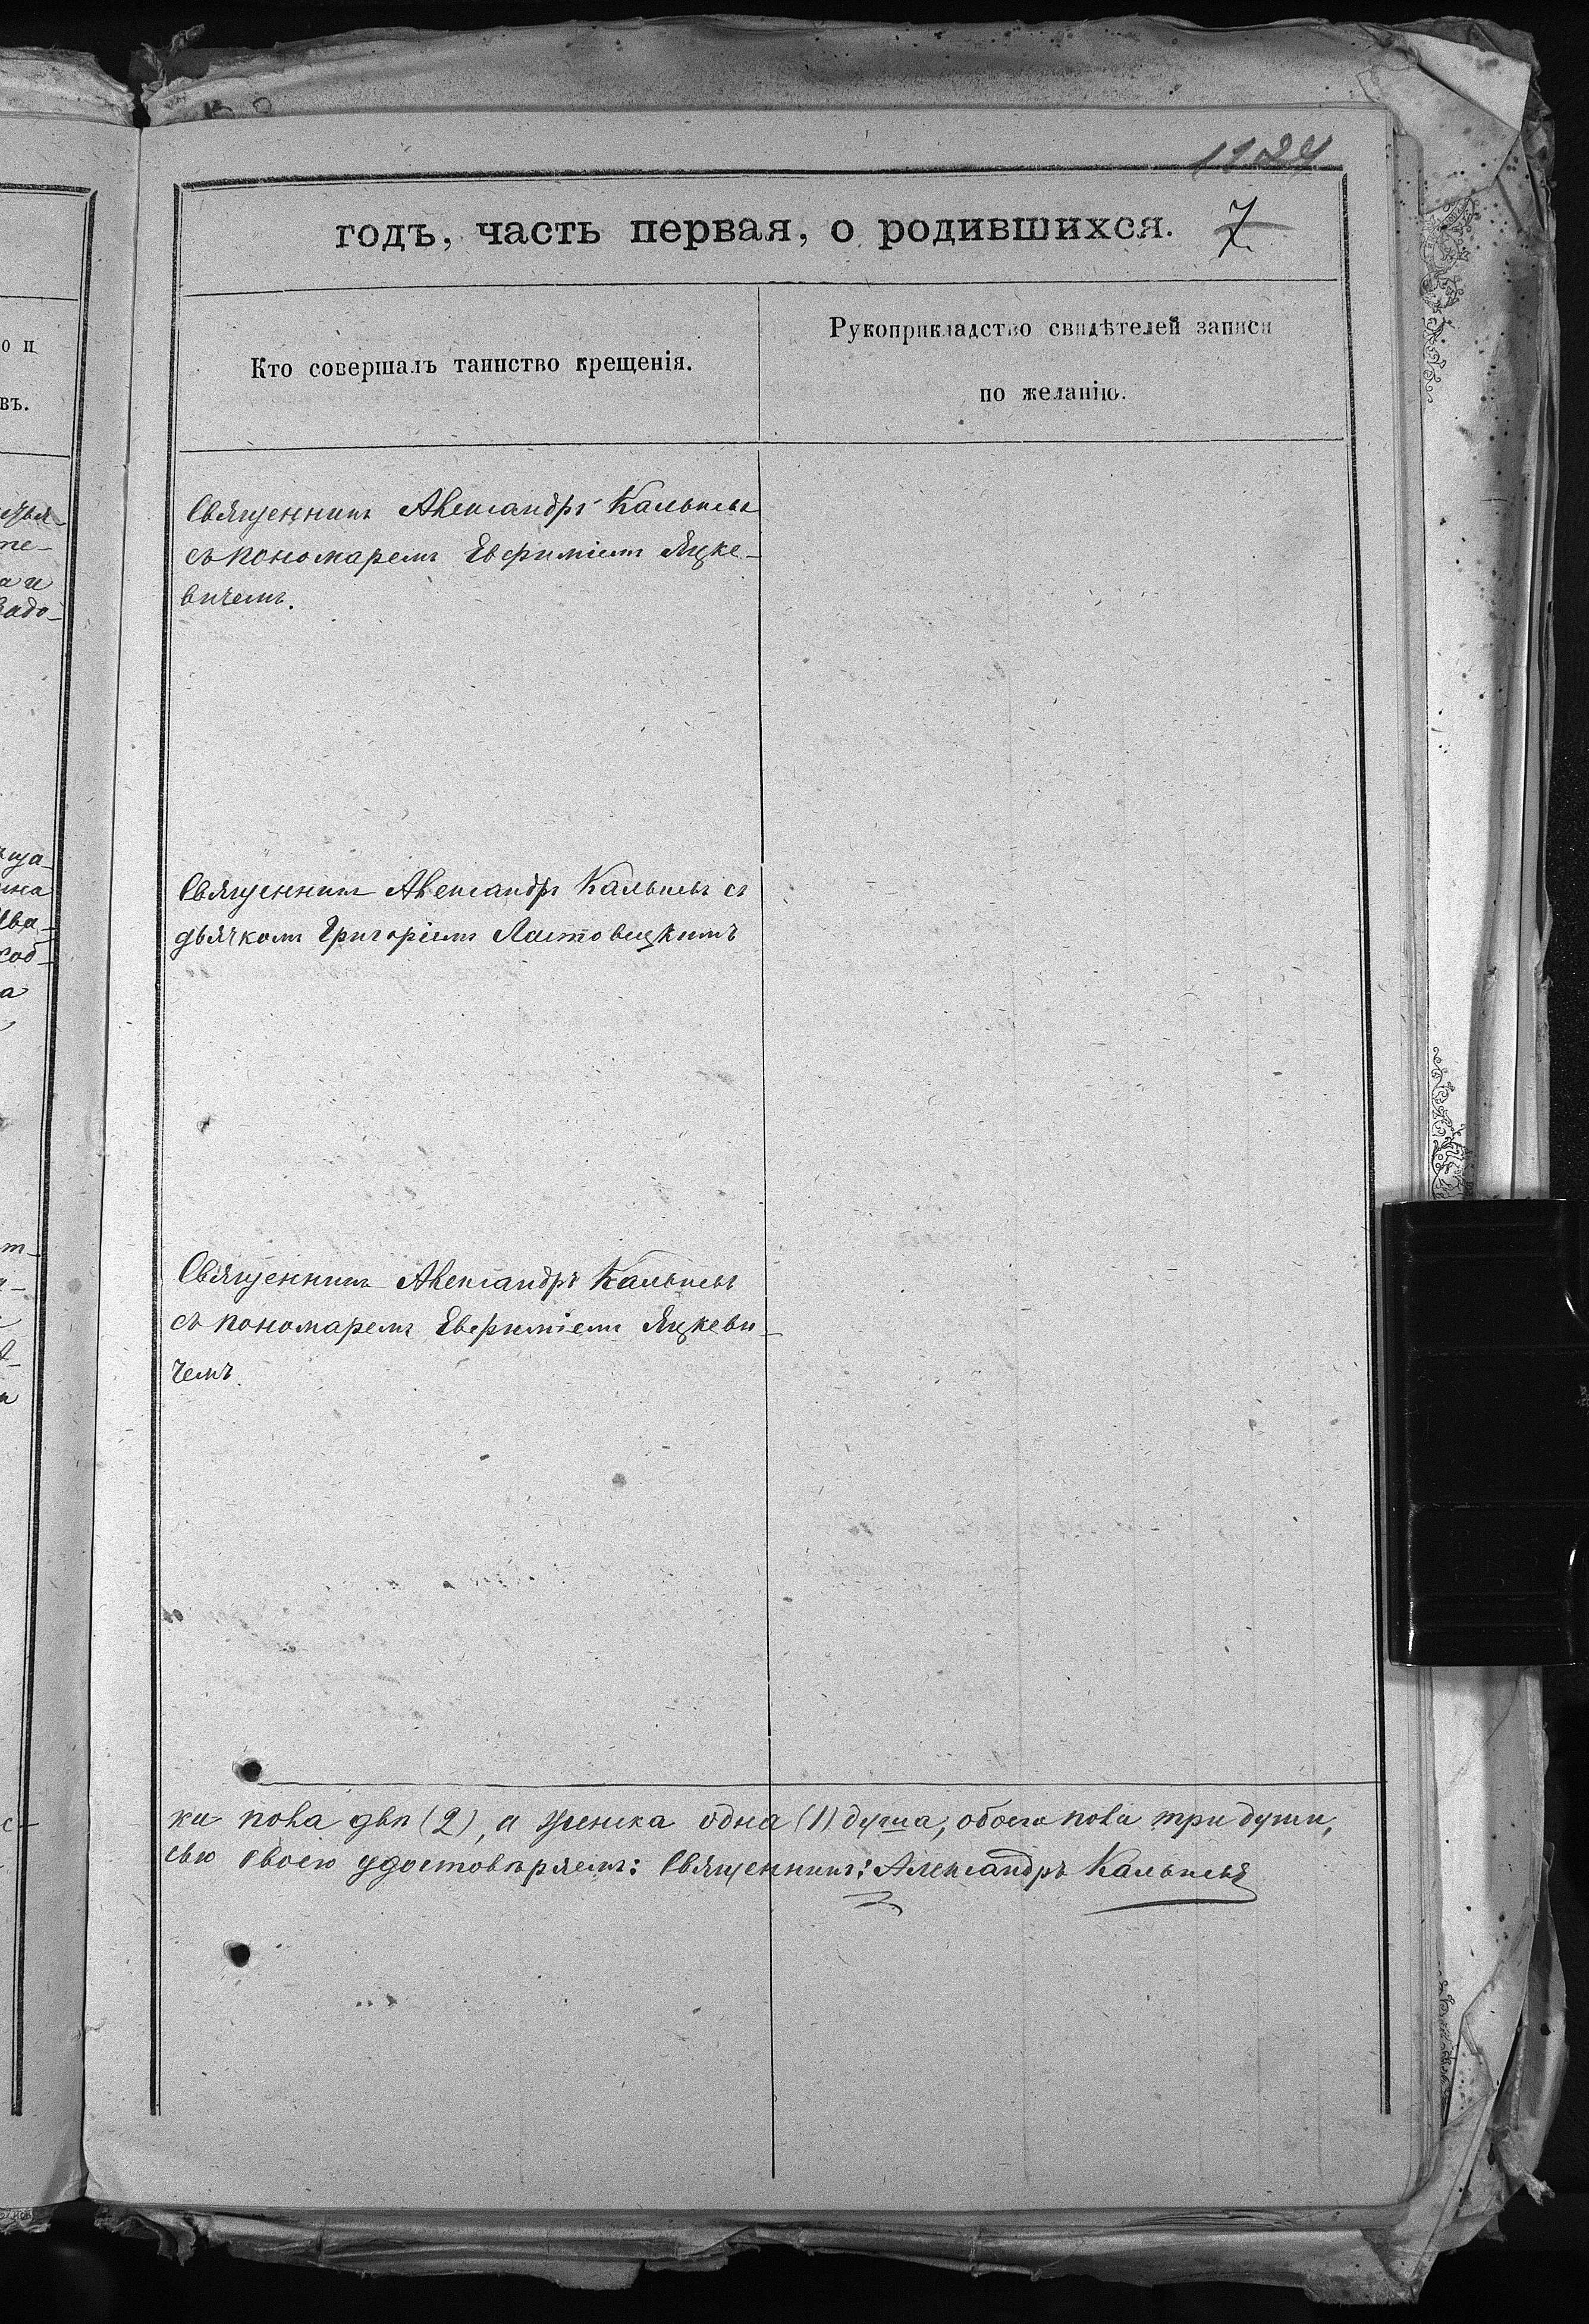 1124
годъ, часть первая, о родившихся. 7
Кто совершалъ таинство крещенія.
Рукоприкладство свидѣтелей записи
по желанію.
о и
въ.
Священникъ Александръ Кальневъ
съ пономаремъ Евфиміемъ Яцке-
вичемъ.
Священникъ Александръ Кальневъ съ
дьячкомъ Григоріемъ Лаготовицкимъ
Священникъ Александръ Кальневъ
съ пономаремъ Евфиміемъ Яцкеви-
чемъ.
ка пола два (2), а женска одна (1) душа, обоего пола три души,
сью своею удостовѣряемъ: Священникъ: Александръ Кальневъ